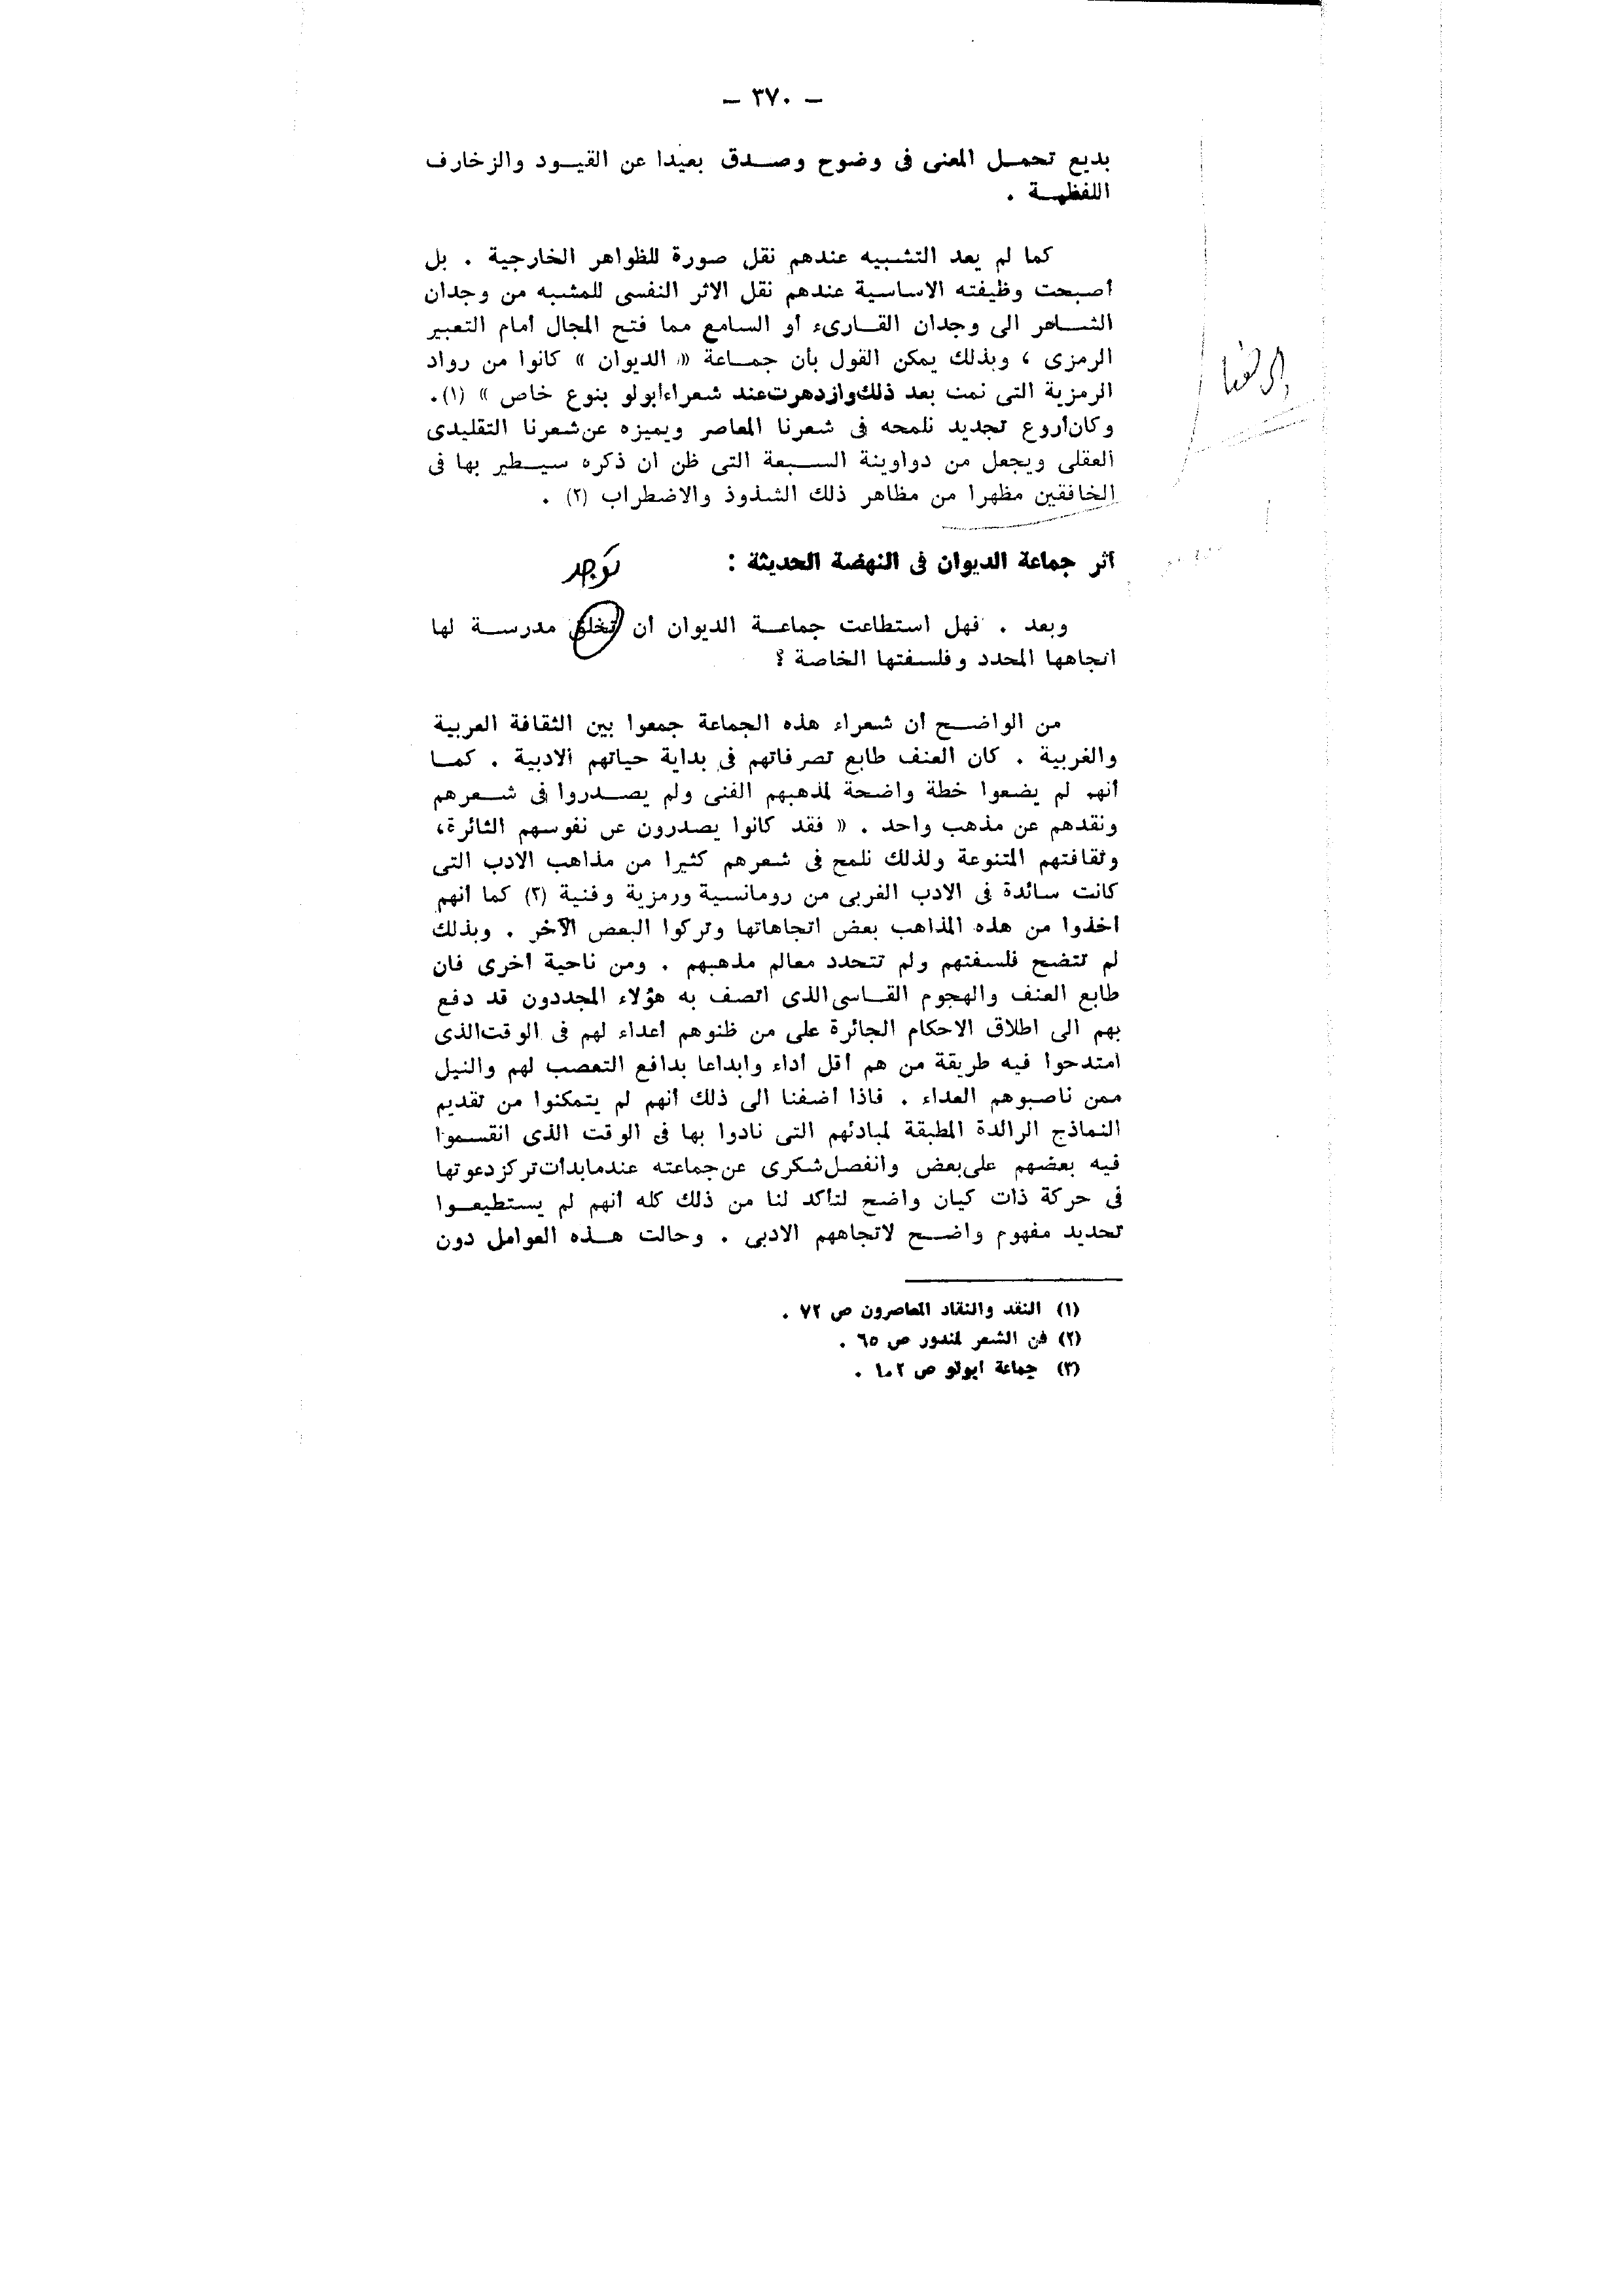 — ٣٧٠ —
بديع تحمل المعنى فى وضوح وصدق بعيدا عن القيود والزخارف
اللفظية .
كما لم يعد التشبيه عندهم نقل صورة للظواهر الخارجية . بل
أصبحت وظيفته الاساسية عندهم نقل الاثر النفسى للمشبه من وجدان
الشاعر الى وجدان القارىء أو السامع مما فتح المجال أمام التعبير
الرمزى ، وبذلك يمكن القول بأن جماعة « الديوان » كانوا من رواد
الرمزية التى نمت بعد ذلك وازدهرت عند شعراء أبولو بنوع خاص » (١).
وكان أروع تجديد نلمحه فى شعرنا المعاصر ويميزه عن شعرنا التقليدى
العقلى ويجعل من دواوينة السبعة التى ظن ان ذكره سيطير بها فى
الخافقين مظهرا من مظاهر ذلك الشذوذ والاضطراب (٢) .
أثر جماعة الديوان فى النهضة الحديثة :
توجد
وبعد . فهل استطاعت جماعة الديوان أن تخلق مدرسة لها
اتجاهها المحدد وفلسفتها الخاصة ؟
من الواضح أن شعراء هذه الجماعة جمعوا بين الثقافة العربية
والغربية . كان العنف طابع تصرفاتهم فى بداية حياتهم الادبية . كما
أنهم لم يضعوا خطة واضحة لمذهبهم الفنى ولم يصدروا فى شعرهم
ونقدهم عن مذهب واحد . « فقد كانوا يصدرون عن نفوسهم الثائرة،
وثقافتهم المتنوعة ولذلك نلمح فى شعرهم كثيرا من مذاهب الادب التى
كانت سائدة فى الادب الغربى من رومانسية ورمزية وفنية (٣) كما أنهم
أخذوا من هذه المذاهب بعض اتجاهاتها وتركوا البعض الآخر . وبذلك
لم تتضح فلسفتهم ولم تتحدد معالم مذهبهم . ومن ناحية أخرى فان
طابع العنف والهجوم القاسى الذى اتصف به هؤلاء المجددون قد دفع
بهم الى اطلاق الاحكام الجائرة على من ظنوهم أعداء لهم فى الوقت الذى
امتدحوا فيه طريقة من هم أقل أداء وابداعا بدافع التعصب لهم والنيل
ممن ناصبوهم العداء . فاذا أضفنا الى ذلك أنهم لم يتمكنوا من تقديم
النماذج الرائدة المطبقة لمبادئهم التى نادوا بها فى الوقت الذى انقسموا
فيه بعضهم على بعض وانفصل شكرى عن جماعته عندما بدأت تركز دعوتها
فى حركة ذات كيان واضح لتأكد لنا من ذلك كله أنهم لم يستطيعوا
تحديد مفهوم واضح لاتجاههم الادبى . وحالت هذه العوامل دون
(١) النقد والنقاد المعاصرون ص ٧٢ .
(٢) فن الشعر لمندور ص ٦٥ .
(٣) جماعة ابولو ص ١٠٢ .